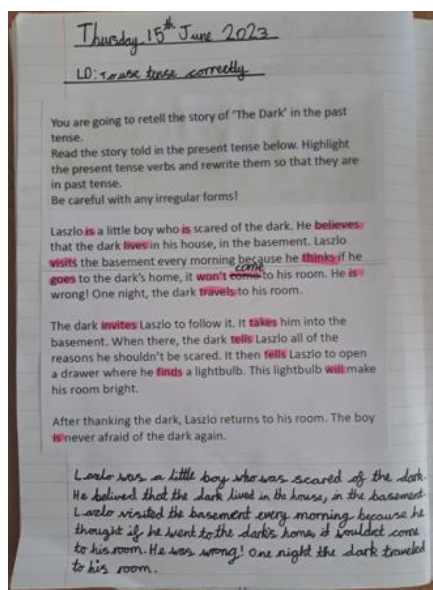 Thursday 15th June 2023
LO: To use tense correctly
You are going to retell the story of 'The Dark' in the past
tense.
Read the story told in the present tense below. Highlight
the present tense verbs and rewrite them so that they are
in past tense.
Be careful with any irregular forms!
Laszlo is a little boy who is scared of the dark. He believes
that the dark lives in his house, in the basement. Laszlo
visits the basement every morning because he thinks if he
come
goes to the dark's home, it won't come to his room. He is
wrong! One night, the dark travels to his room.
The dark invites Laszlo to follow it. It takes him into the
basement. When there, the dark tells Laszlo all of the
reasons he shouldn't be scared. It then tells Laszlo to open
a drawer where he finds a lightbulb. This lightbulb will make
his room bright.
After thanking the dark, Laszlo returns to his room. The boy
is never afraid of the dark again.
Lazlo was a little boy who was scared of the dark.
He belived that the dark lived in the house, in the basement
Lazlo visited the basement every morning because he
thought if he went to the dark's home, it wouldnt come
to his room. He was wrong! One night the dark traveled
to his room.